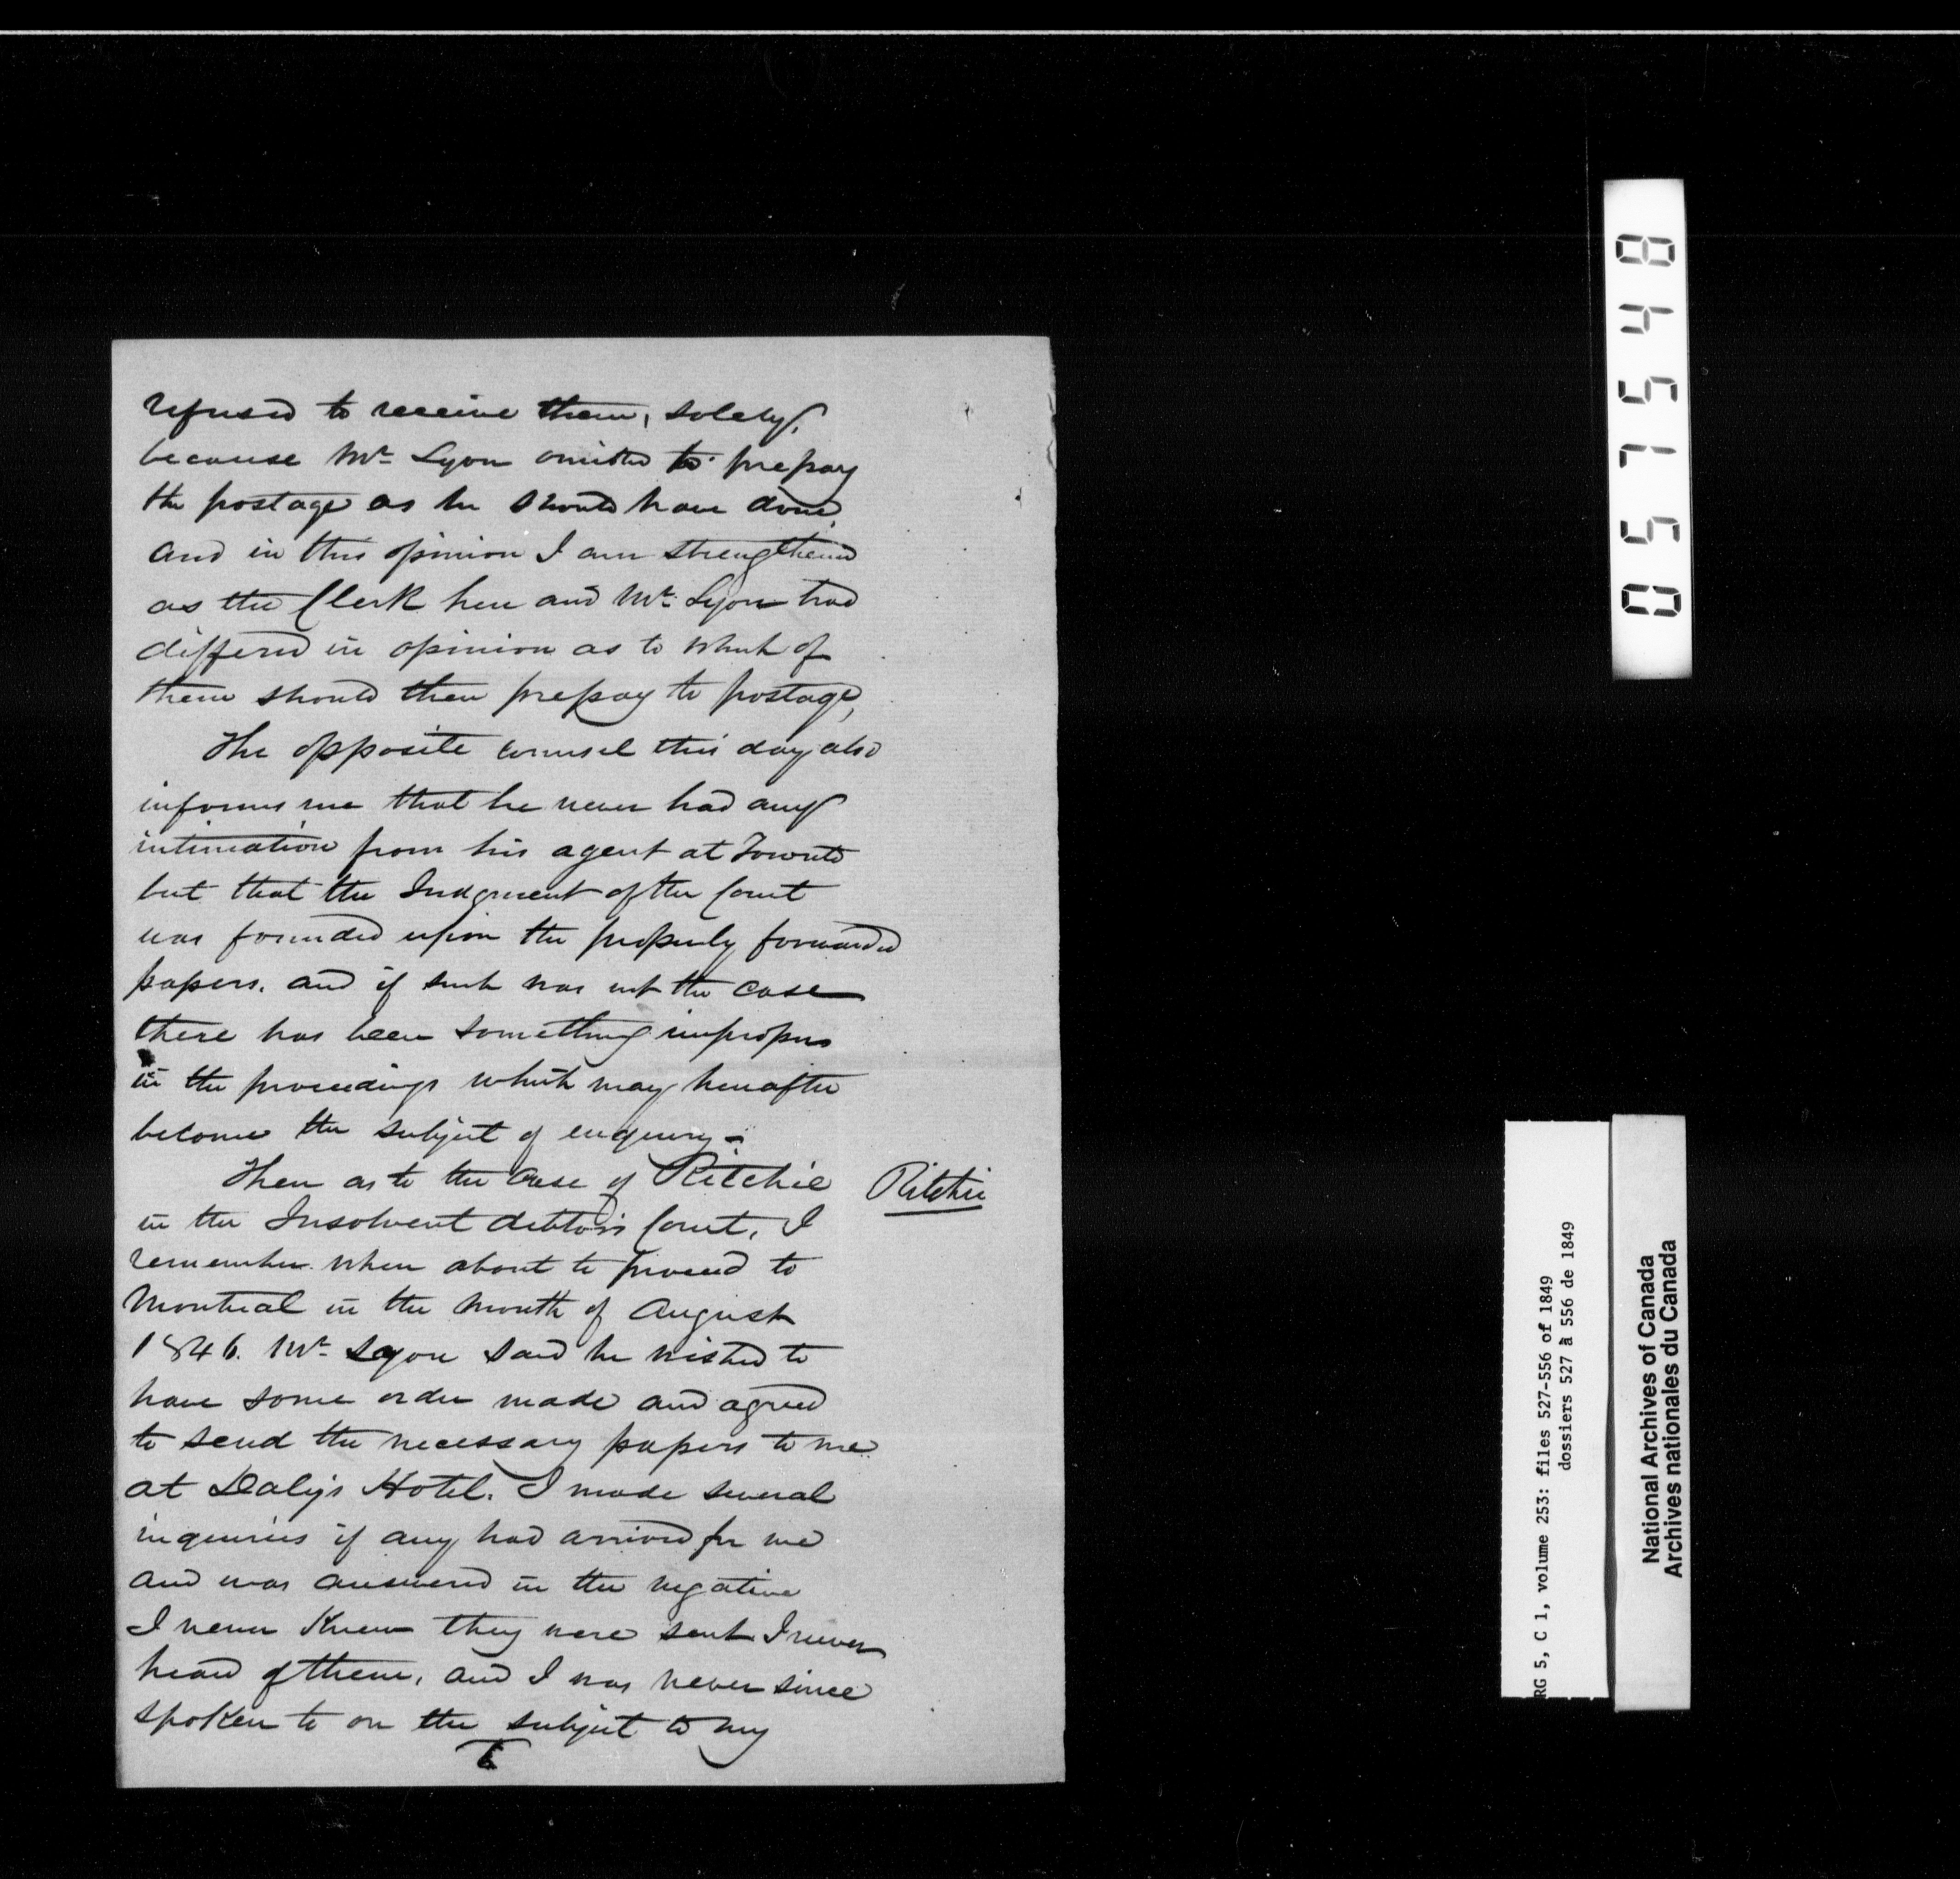 refused to receive them, solely,
because Mr Lyon omitted to prepay
the postage as he should have done,
and in this opinion I am strengthened
as the Clerk here and Mr Lyon had
differed in opinion as to which of
them should then prepay to postage,
The opposite counsel this day also
informs me that he never had any
intimation from his agent at Toronto
but that the Judgment of the Court
was founded upon the properly forwarded
papers. and if such was not the case
there has been something improper
in the proceedings which may hereafter
become the subject of enquiry-
Then as to the case of Ritchie
Ritchie
in the Insolvent debtors Court, I
remember when about to proceed to
Montreal in the month of August
1846. Mr Lyon said he wished to
have some order made and agreed
to send the necessary papers to me
at Daly's Hotel. I made several
inquiries if any had arrived for me
and was answered in the negative
I never knew they were sent I never
heard of them, and I was never since
spoken to on the subject to my
057548
RG 5, C 1, volume 253: files 527-556 of 1849
dossiers 527 à 556 de 1849
National Archives of Canada
Archives nationales du Canada